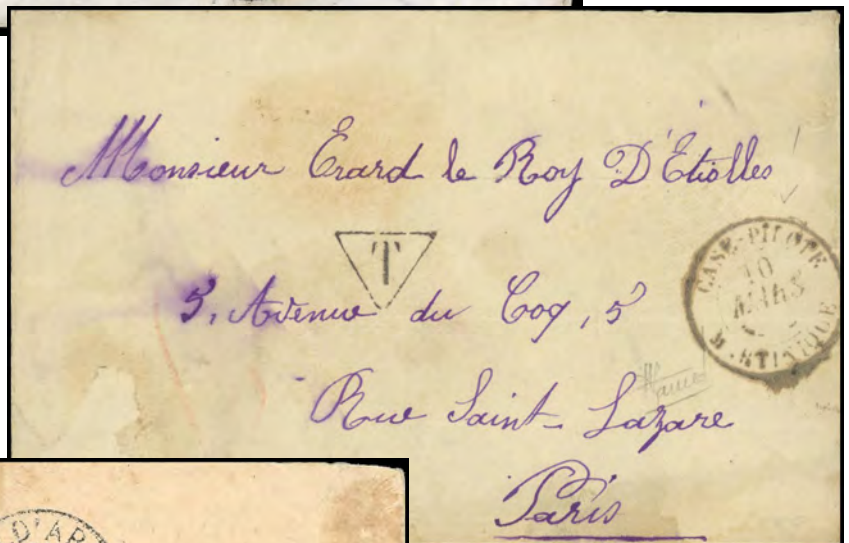 Monsieur Érard le Roy D'Étiolles
T
5, Avenue du Coq, 5
CASE-PILOTE
10
MARS
MARTINIQUE
Rue Saint-Lazare
Paris
D'AR